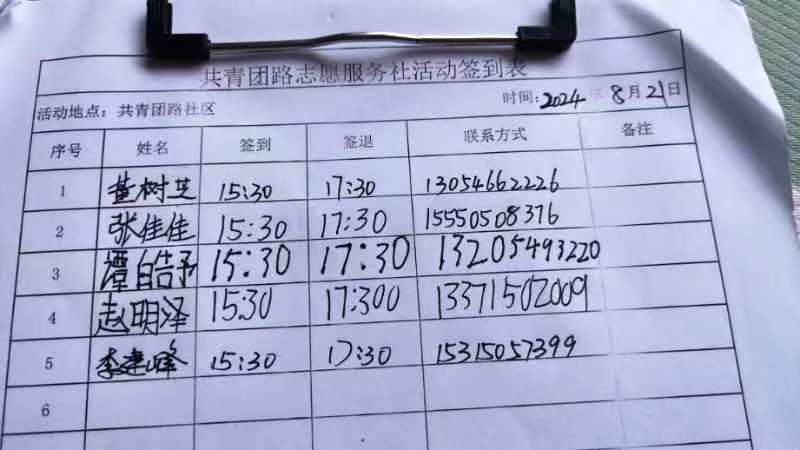 共青团路志愿服务社活动签到表
活动地点：共青团路社区 时间：2024年8月21日
序号 姓名 签到 签退 联系方式 备注
1 董树芝 15:30 17:30 13054662226
2 张佳佳 15:30 17:30 15550508376
3 潭皓予 15:30 17:30 13205493220
4 赵明泽 15:30 17:300 13371502009
5 李建峰 15:30 17:30 15315057399
6